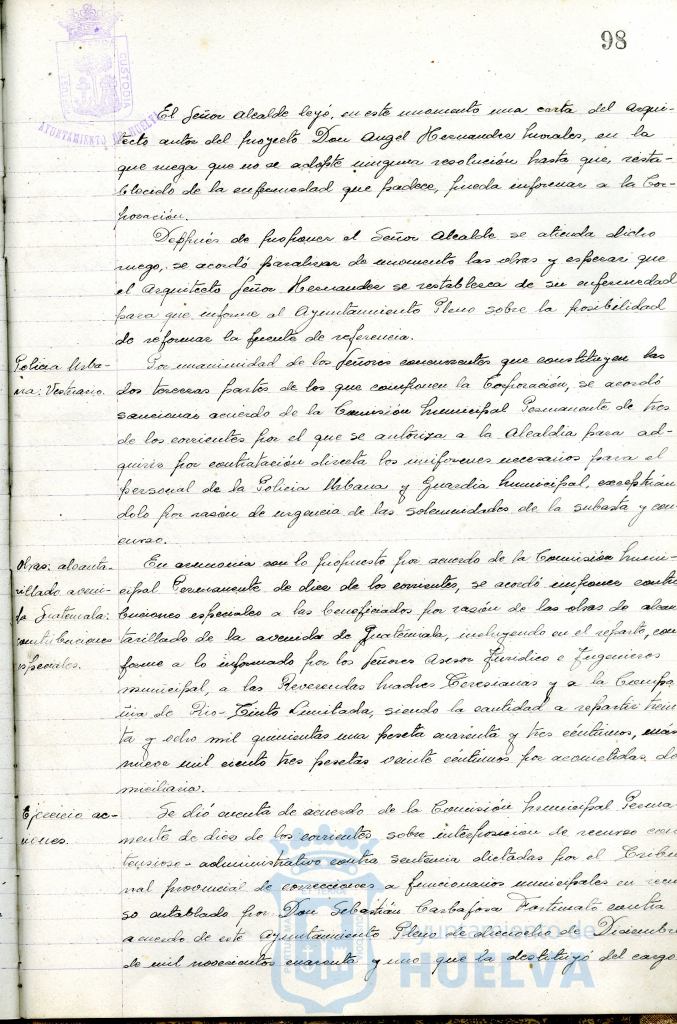 98
CUSTODIA
AYUNTAMIENTO DE HUELVA
El Señor Alcalde leyó, en este momento una carta del Arqui-
tecto autor del proyecto Don Angel Hernandez Morales, en la
que ruega que no se adopte ninguna resolución hasta que, resta-
blecido de la enfermedad que padece, pueda informar a la Cor-
poración.
Después de proponer el Señor Alcalde se atienda dicho
ruego, se acordó paralizar de momento las obras y esperar que
el Arquitecto Señor Hernandez se restablezca de su enfermedad
para que informe al Ayuntamiento Pleno sobre la posibilidad
de reformar la fuente de referencia.
Policia Urba-
na: Vestuario.
Por unanimidad de los Señores concurrentes que constituyen las
dos terceras partes de los que componen la Corporación, se acordó
sancionar acuerdo de la Comisión Municipal Permanente de tres
de los corrientes por el que se autoriza a la Alcaldia para ad-
quirir por contratación directa los uniformes necesarios para el
personal de la Policia Urbana y Guardia Municipal, exceptuán
dolo por razón de urgencia de las solemnidades de la subasta y con-
curso.
Obras: alcanta-
rillado aveni-
da Guatemala:
contribuciones
especiales.
En armonia con lo propuesto por acuerdo de la Comisión Muni-
cipal Permanente de diez de los corrientes, se acordó imponer contri
buciones especiales a los beneficiados por razón de las obras de alcan
tarillado de la avenida de Guatemala, incluyendo en el reparto, con
forme a lo informado por los Señores Asesor Juridico e Ingeniero
municipal, a las Reverendas Madres Teresianas y a la Compa
ñia de Rio-Tinto Limitada, siendo la cantidad a repartir trein
ta y ocho mil quinientas una peseta cuarenta y tres céntimos, más
nueve mil ciento tres pesetas veinte céntimos por acometidas do
miciliarias.
Ejercicio ac-
ciones.
Se dió cuenta de acuerdo de la Comisión Municipal Perma
nente de diez de los corrientes sobre interposición de recurso con
tencioso-administrativo contra sentencia dictadas por el Tribu
nal provincial de correcciones a funcionarios municipales en recur
so entablado por Don Sebastián Carbafosa Fortunato contra
acuerdo de este Ayuntamiento Pleno de dieciocho de Diciembre
de mil novecientos cuarenta y uno que la destituyó del cargo
Ayuntamiento de
HUELVA